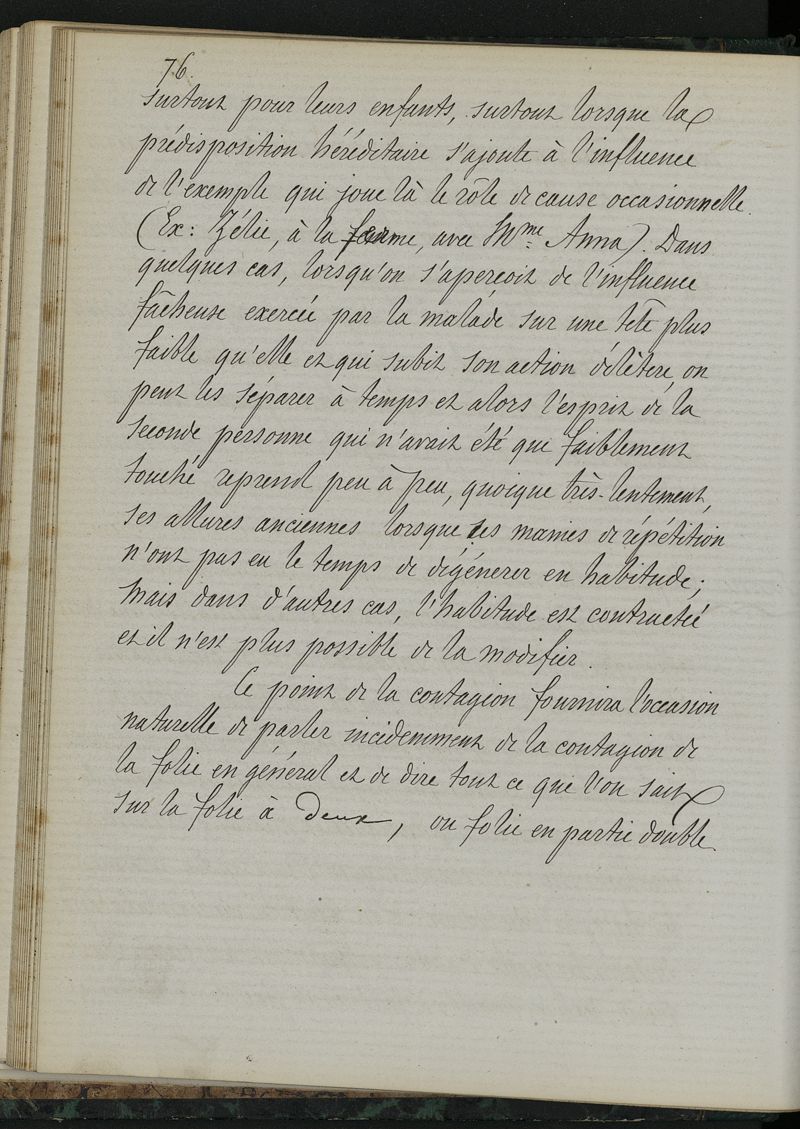 76.
surtout pour leurs enfants, surtout lorsque la
prédisposition héréditaire s'ajoute à l'influence
de l'exemple qui joue là le rôle de cause occasionnelle.
(Ex: Zélie, à la ferme, avec Mme Anna). Dans
quelques cas, lorsqu'on s'aperçoit de l'influence
fâcheuse exercée par la malade sur une tête plus
faible qu'elle et qui subit son action délétère, on
peut les séparer à temps et alors l'esprit de la
seconde personne qui n'avait été que faiblement
touché reprend peu à peu, quoique très-lentement,
ses allures anciennes lorsque les manies de répétition
n'ont pas eu le temps de dégénérer en habitude;
mais dans d'autres cas, l'habitude est contractée
et il n'est plus possible de la modifier.
Ce point de la contagion fournira l'occasion
naturelle de parler incidemment de la contagion de
la folie en général et de dire tout ce que l'on sait
sur la folie à deux, ou folie en partie double